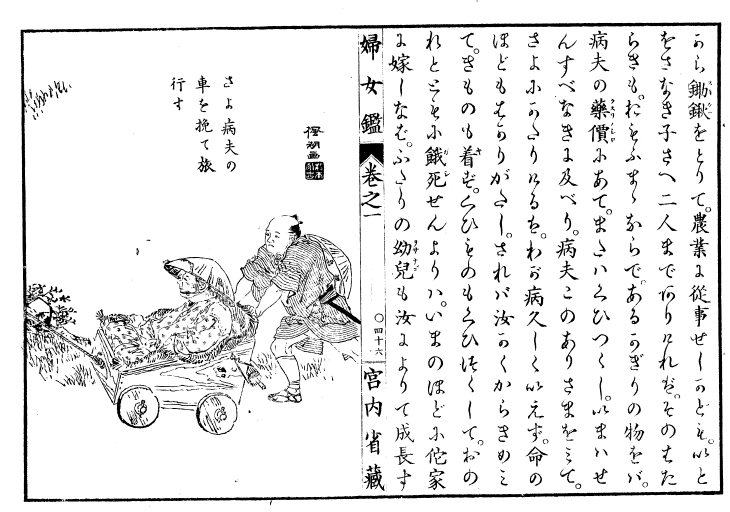 から鋤鍬をとりて。農業に從事せしかども。いと
をさなき子さへ二人までありければ。そのはた
らきも。おもふまゝならで。あるかぎりの物をバ。
病夫の藥價にあて。またハくひつくし。いまハせ
んすべなきに及べり。病夫このありさまをミて。
さよにかたりけるを。わが病久しくいえず。命の
ほどもはかりがたし。されバ汝かくからきめミ
て。きものも着ず。くひものもくひつくして。おの
れとともに餓死せんよりハ。いまのほどに佗家
に嫁しなば。ふたりの幼兒も汝によりて成長す
婦女鑑
卷之一
〇四十六
宮内省藏
さよ病夫の
車を挽て旅
行す